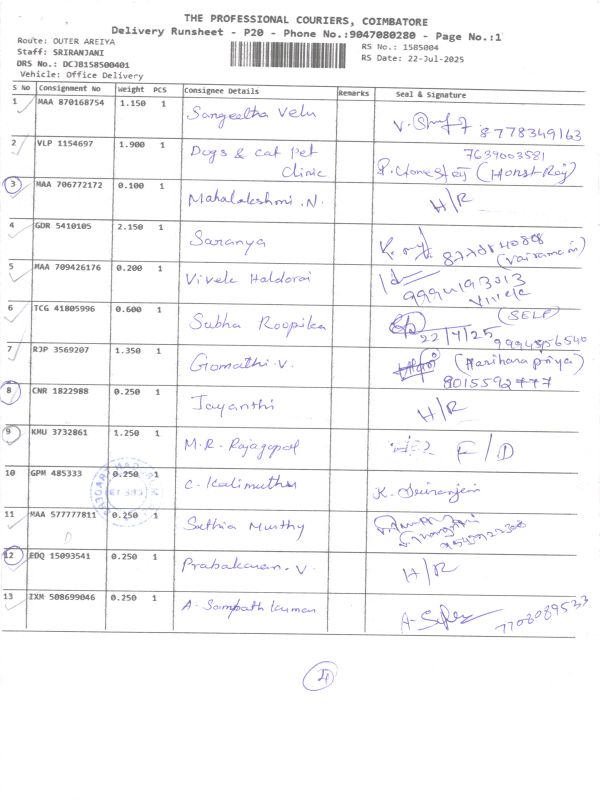 THE PROFESSIONAL COURIERS, COIMBATORE
Delivery Runsheet - P20 - Phone No.:9047080280 - Page No.:1
Route: OUTER AREIYA
RS No.: 1585004
Staff: SRIRANJANI
RS Date: 22-Jul-2025
DRS No.: DCJB158500401
Vehicle: Office Delivery
S No Consignment No Weight PCS Consignee Details Remarks Seal & Signature
1 MAA 870168754 1.150 1 Sangeetha Velu V. 8778349163
2 VLP 1154697 1.900 1 Dogs & Cat Pet Clinic 7639003581 (Honst Raj)
3 MAA 706772172 0.100 1 Mahalakshmi .N. H/R
4 GDR 5410105 2.150 1 Saranya (Vairamani)
5 MAA 709426176 0.200 1 Vivek Haldorai Vivek
6 TCG 41805996 0.600 1 Subha Roopika (SELF) 22/7/25
7 RJP 3569207 1.350 1 Gomathi.V. (Hariharapriya) 9015592777
8 CNR 1822988 0.250 1 Jayanthi H/R
9 KMU 3732861 1.250 1 M.R. Rajagopal F/D
10 GPM 485333 0.250 1 C. Kalimuthu K. Sriranjani
11 MAA 577777811 0.250 1 Sathia Murthy
12 EDQ 15093541 0.250 1 Prabakaran.V. H/R
13 IXM 508699046 0.250 1 A. Sampath Kumar 7708089533
4